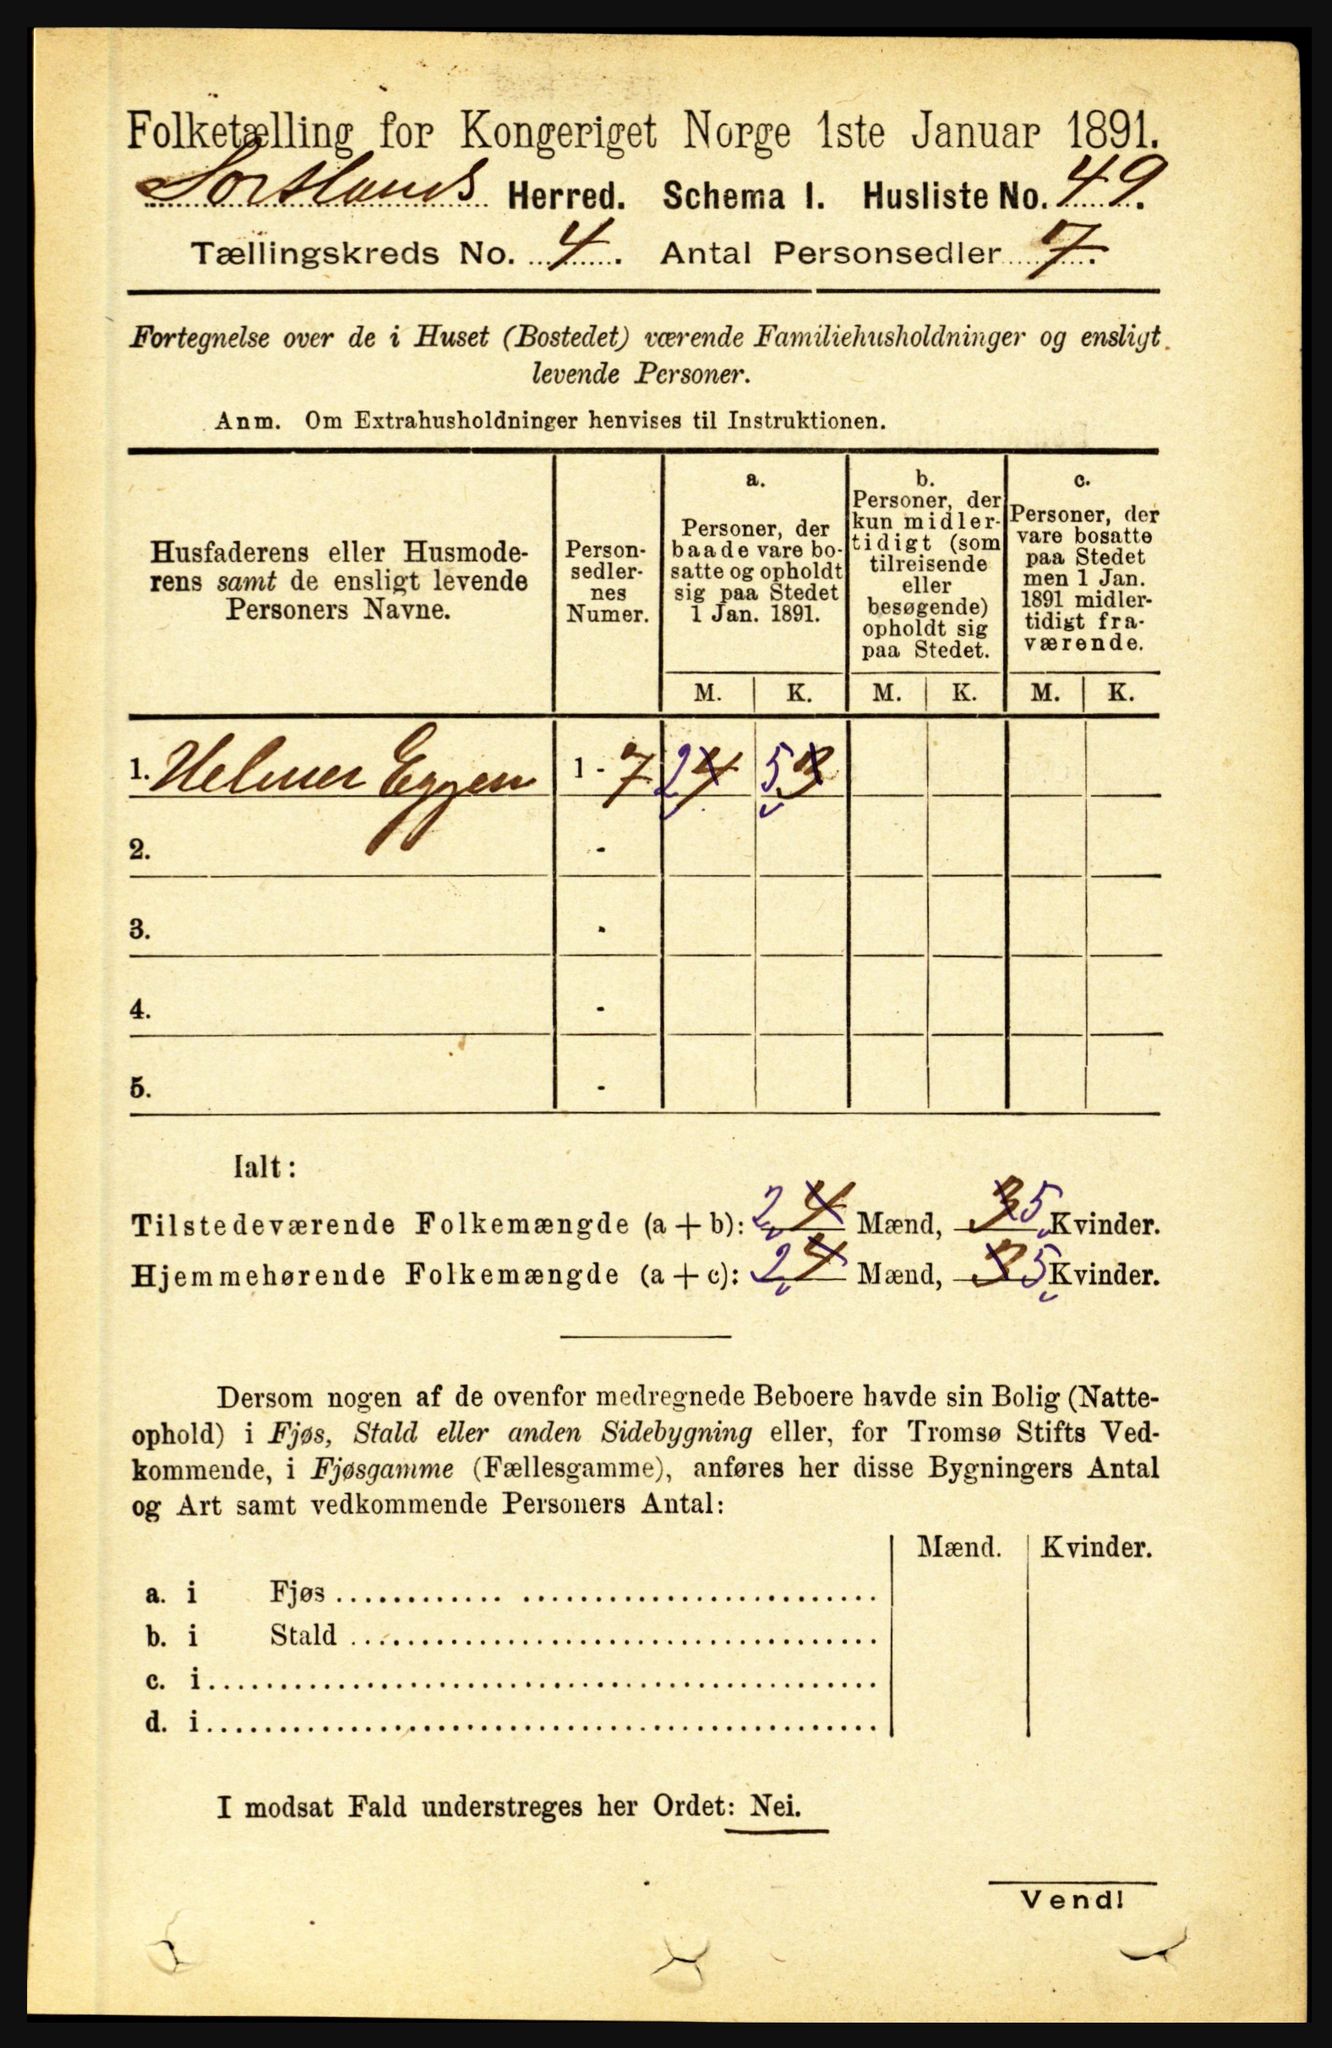 Folketælling for Kongeriget Norge 1ste Januar 1891.
Sortlands Herred. Schema I. Husliste No. 49.
Tællingskreds No. 4. Antal Personsedler 7.
Fortegnelse over de i Huset (Bostedet) værende Familiehusholdninger og ensligt
levende Personer.
Anm. Om Extrahusholdninger henvises til Instruktionen.
Husfaderens eller Husmode-
rens samt de ensligt levende
Personers Navne.
Person-
sedler-
nes
Numer.
a.
Personer, der
baade vare bo-
satte og opholdt
sig paa Stedet
1 Jan. 1891.
b.
Personer, der
kun midler-
tidigt (som
tilreisende
eller
besøgende)
opholdt sig
paa Stedet.
c.
Personer, der
vare bosatte
paa Stedet
men 1 Jan.
1891 midler-
tidigt fra-
værende.
M. K. M. K. M. K.
1. Helmer Eggen 1 - 7 2 4 5 3
2. -
3. -
4. -
5. -
Ialt:
Tilstedeværende Folkemængde (a + b): 2 4 Mænd, 3 5 Kvinder.
Hjemmehørende Folkemængde (a + c): 2 4 Mænd, 3 5 Kvinder.
Dersom nogen af de ovenfor medregnede Beboere havde sin Bolig (Natte-
ophold) i Fjøs, Stald eller anden Sidebygning eller, for Tromsø Stifts Ved-
kommende, i Fjøsgamme (Fællesgamme), anføres her disse Bygningers Antal
og Art samt vedkommende Personers Antal:
Mænd. Kvinder.
a. i Fjøs
b. i Stald
c. i
d. i
I modsat Fald understreges her Ordet: Nei.
Vend!